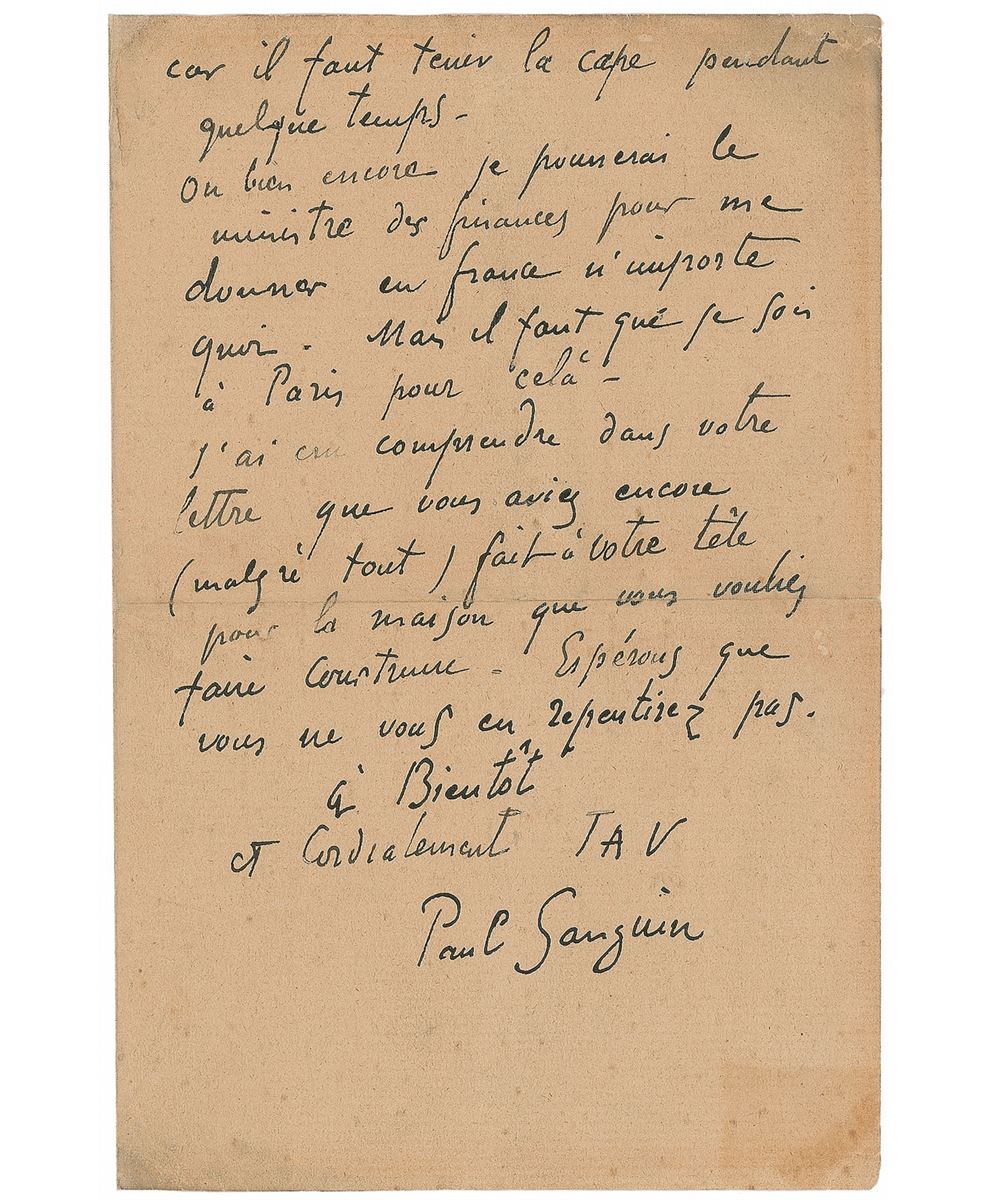 car il faut tenir la cape pendant
quelque temps -
Ou bien encore je pousserai le
ministre des finances pour me
donner en france n'importe
quoi. Mais il faut que je sois
à Paris pour celà -
J'ai cru comprendre dans votre
lettre que vous aviez encore
(malgré tout) fait à votre tête
pour la maison que vous vouliez
faire Construire - Espérons que
vous ne vous en repentirez pas.
à Bientôt
et Cordialement TAV
Paul Gauguin